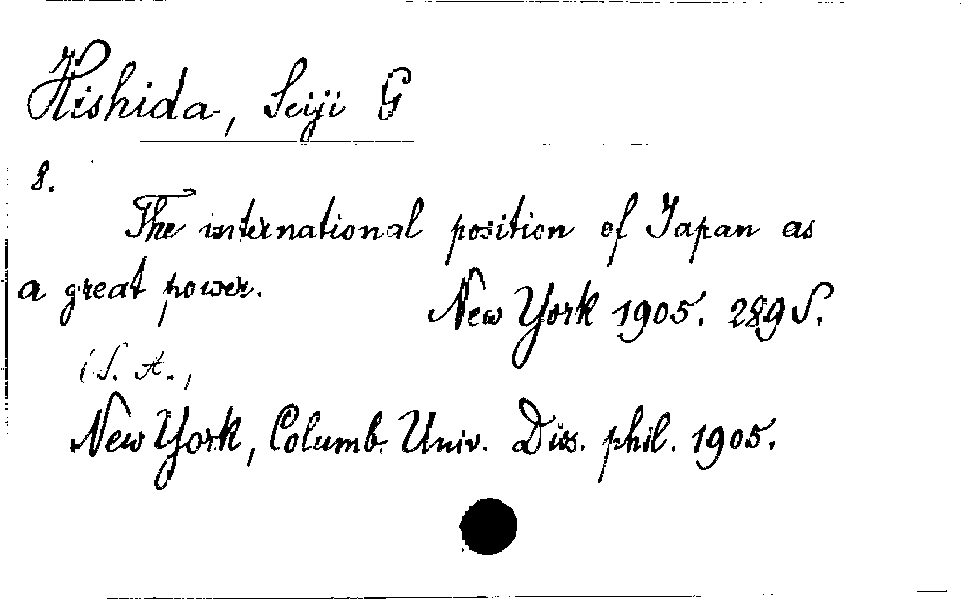 Hishida, Seiji G
8.
The international position of Japan as
a great power.
New York 1905. 289 S.
(S. A.,
New York, Columb. Univ. Diss. phil. 1905.